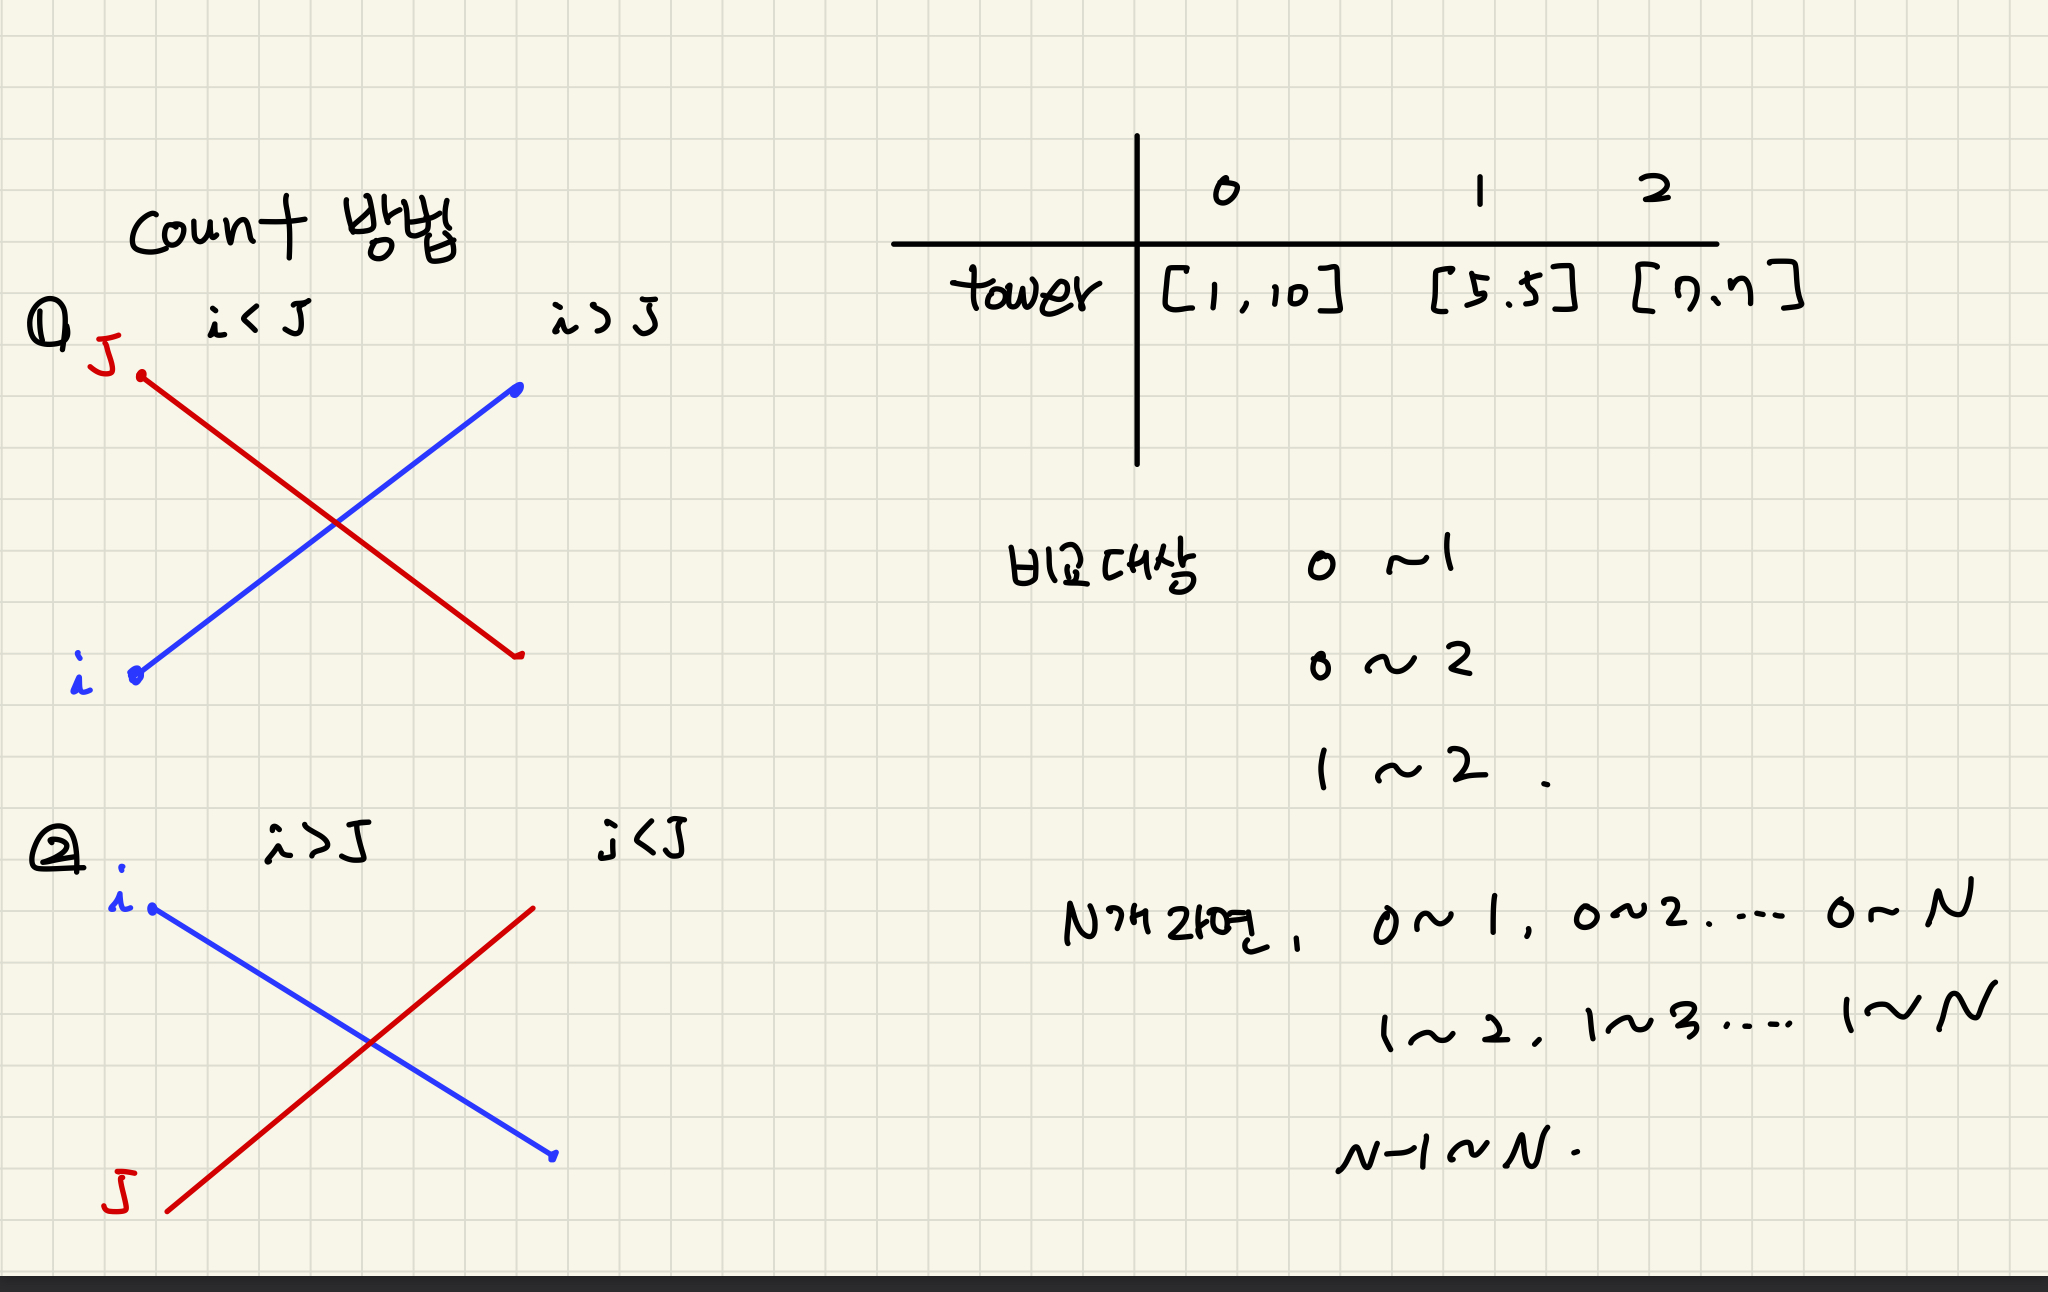 Count 방법
① i < J i > J
J
i
② i > J j < J
i
J
0 1 2
tower [1, 10] [5.5] [7.7]
비교대상 0 ~ 1
0 ~ 2
1 ~ 2 .
N개 라면, 0 ~ 1, 0 ~ 2. .... 0 ~ N
1 ~ 2, 1 ~ 3 ..... 1 ~ N
N-1 ~ N.